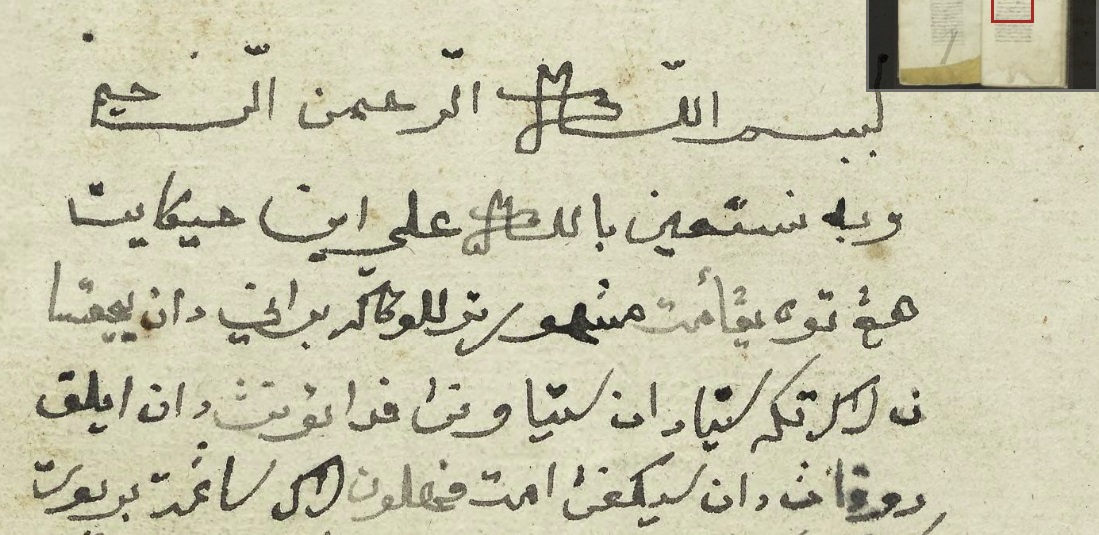 بسم الله الرحمن الرحيم
وبه نستعين بالله علي اين حيكايت
هڠ توه يڠ أمت مشهور ترللو كاكه براني دان بيجقسا
ن لاكي تكه ستيا دان ستيا ون فدا تونڽ دان ايلق
روفاڽ دان سيكفڽ امت فهلون لاكي ساڠت بربوت